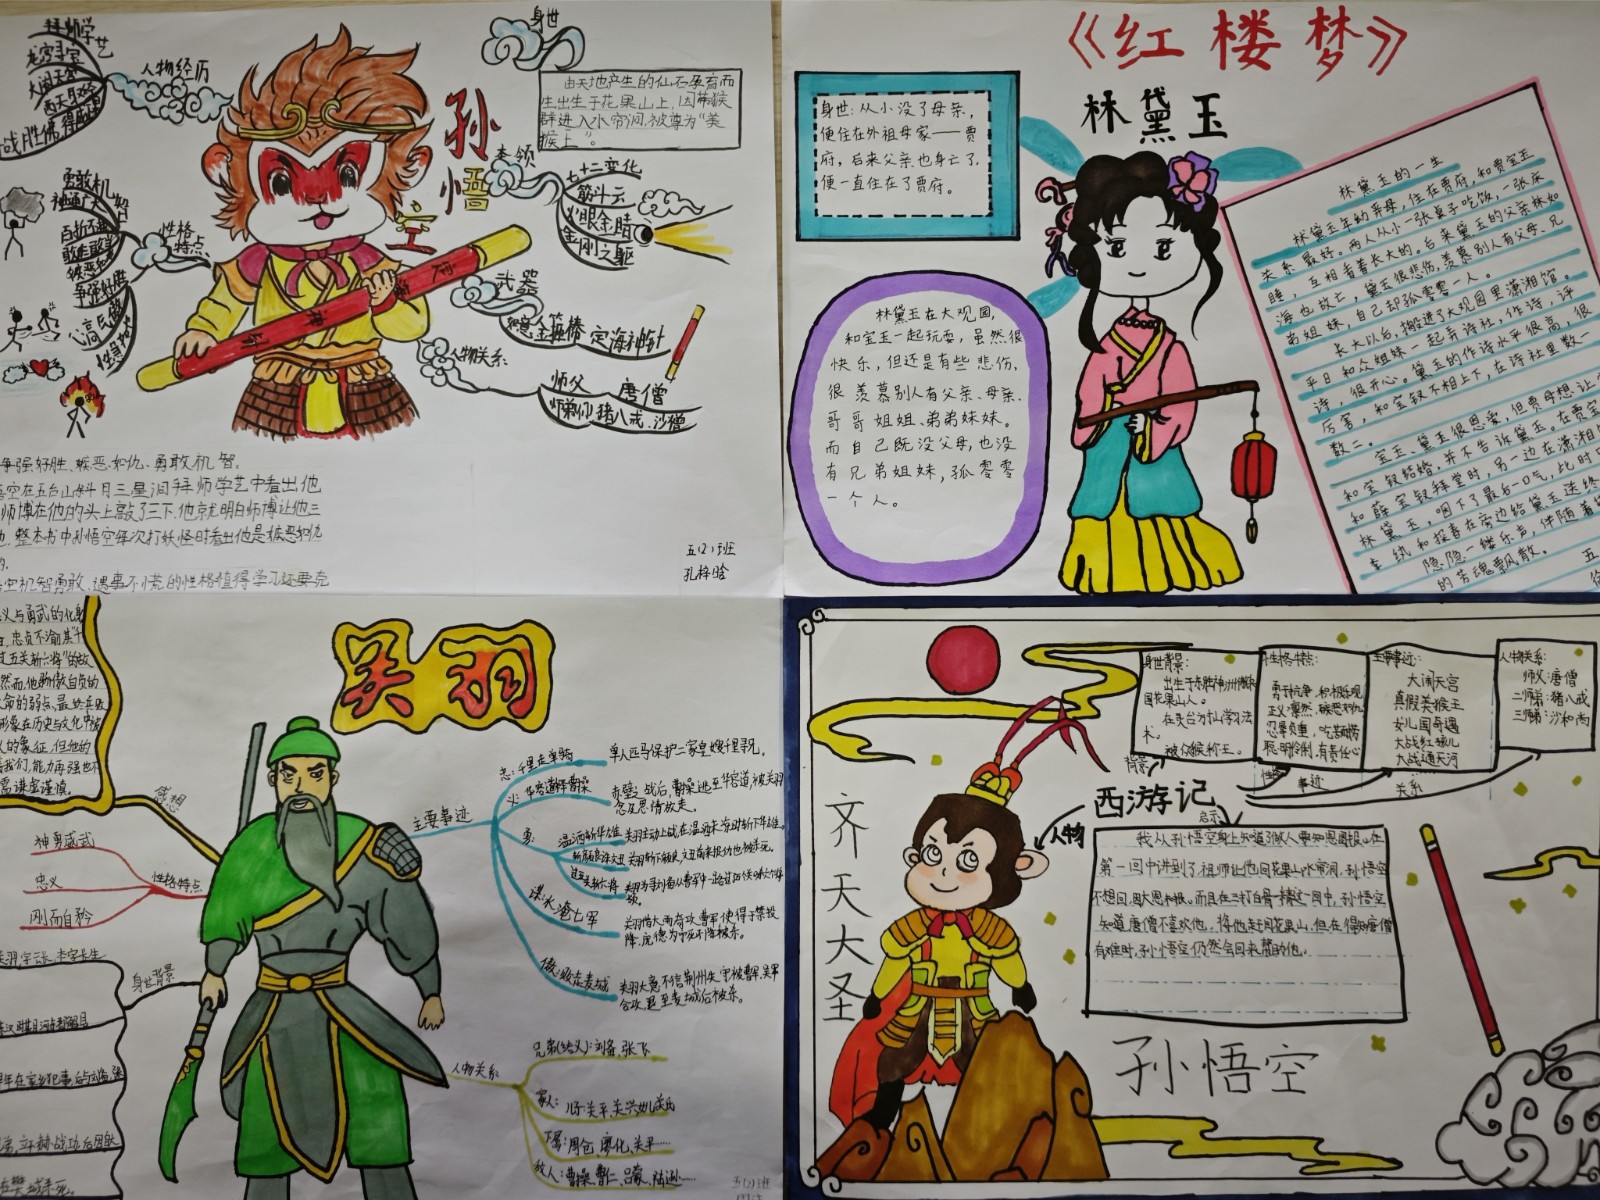 拜师学艺
龙宫寻宝
大闹天宫
西天取经
战胜佛
人物经历
孙悟空
身世
由天地产生的仙石孕育而
生出生于花果山上,因带猴
群进入水帘洞,被尊为“美
猴王”。
本领
七十二变化
筋斗云
火眼金睛
金刚之躯
性格特点
勇敢机智
神通广大
百折不挠
敢作敢当
嫉恶如仇
争强好胜
心高气傲
武器
如意金箍棒 定海神针
人物关系:
师父 唐僧
师弟们 猪八戒、沙僧
争强好胜、嫉恶如仇、勇敢机智。
悟空在五台山斜月三星洞拜师学艺中看出他
师博在他的头上敲了三下,他就明白师博让他三
整本书中孙悟空每次打妖怪时看出他是嫉恶如仇
空机智勇敢、遇事不慌的性格值得学习还要克
五(2)班
《红楼梦》
林黛玉
身世:从小没了母亲,
便住在外祖母家——贾
府,后来父亲也身亡了,
便一直住在了贾府。
林黛玉在大观园,
和宝玉一起玩耍,虽然很
快乐,但还是有些悲伤,
很羡慕别人有父亲、母亲、
哥哥姐姐、弟弟妹妹。
而自己既没父母,也没
有兄弟姐妹,孤零零
一个人。
林黛玉的一生
林黛玉年幼丧母,住在贾府,和贾宝玉
关系最好。两人从小一张桌子吃饭,一张床
睡,互相看着长大的。后来黛玉的父亲林如
海也故亡,黛玉很悲伤,羡慕别人有父母、兄
弟姐妹,自己却孤零零一人。
长大以后,搬进了大观园里潇湘馆。
平日和众姐妹一起弄诗社,作诗,评
诗,很开心。黛玉的作诗水平很高,很
厉害,和宝钗不相上下,在诗社里数一
数二。
宝玉、黛玉很恩爱,但贾母想让
和宝钗结婚,并不告诉黛玉。在贾宝
和薛宝钗拜堂时,另一边在潇湘
林黛玉,咽下了最后一口气,此时
李纨和探春在旁边给黛玉送终
隐隐一缕乐声,伴随着
的芳魂飘散。
五
关羽
义与勇武的化身
忠贞不渝,其“千
过五关斩六将”的故
然而,他的傲自负的
命的弱点,最终兵败
形象在历史与文化中被
义的象征,但他的
我们,能力再强也不
需谦虚谨慎。
感想
神勇威武
忠义
刚而自矜
性格特点
身世背景
主要事迹
忠:千里走单骑
单人匹马保护二家皇嫂千里寻兄。
义:华容道释曹操
赤壁之战后,曹操逃至华容道,被关羽
念及恩情放走。
勇:
温酒斩华雄
关羽主动上战,在温酒未凉时斩下华雄。
斩颜良诛文丑
过五关斩六将
谋:水淹七军
降,庞德为宁死不降被杀。
傲:败走麦城
关羽大意不信荆州失守被曹军、吴军
合攻,退至麦城后被杀。
人物关系:
兄弟(结义):刘备,张飞
家人:
儿子:关平、关兴
下属:周仓、廖化、关平……
敌人:曹操、曹仁、吕蒙、陆逊……
五(2)班
齐天大圣
西游记
孙悟空
身世背景:
出生于东胜神州傲来
国花果山人。
术。
被众猴称王。
性格特点:
勇于抗争,积极乐观
正义凛然,嫉恶如仇
忍辱负重,吃苦耐劳
聪明伶俐,有责任心
主要事迹:
大闹天宫
真假美猴王
女儿国奇遇
大战红孩儿
大战通天河
人物关系:
师父:唐僧
二师弟:猪八戒
三师弟:沙和尚
背景
性格
事迹
关系
人物
启示
我从孙悟空身上知道了做人要知恩图报。在
第一回中讲到了祖师让他回花果山水帘洞,孙悟空
不想回,因大恩未报。而且在三打白骨精这一回中,孙悟空
知道唐僧不喜欢他,将他赶回花果山,但在得知唐僧
有难时,孙悟空仍然会回来帮助他。